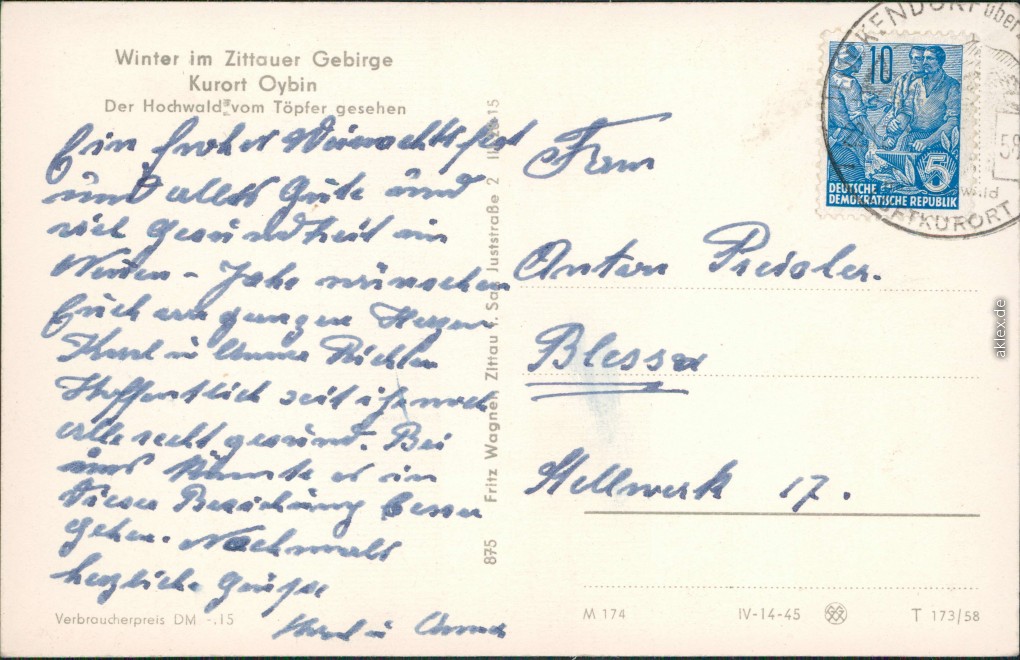 Winter im Zittauer Gebirge
Kurort Oybin
Der Hochwald vom Töpfer gesehen
Ein frohes Weinachtsfest
und alles Gute und
viel Gesundheit im
Neuen - Jahr wünschen
Euch von ganzen Herzen
Karl u Anna
Hoffentlich seit ihr noch
alle recht gesund. Bei
uns könnte es in
dieser Beziehung besser
gehen. Nochmals
herzliche Grüße
Karl u Anna
Verbraucherpreis DM -.15
875 Fritz Wagner, Zittau i. Sa., Juststraße 2
Anton
Stellwerk 17.
10
5
DEUTSCHE
DEMOKRATISCHE REPUBLIK
KENDORF über
59
LUFTKURORT
M 174
IV-14-45
T 173/58
aklex.de